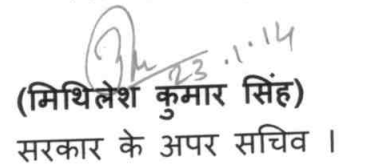 23.1.14
(मिथिलेश कुमार सिंह)
सरकार के अपर सचिव ।